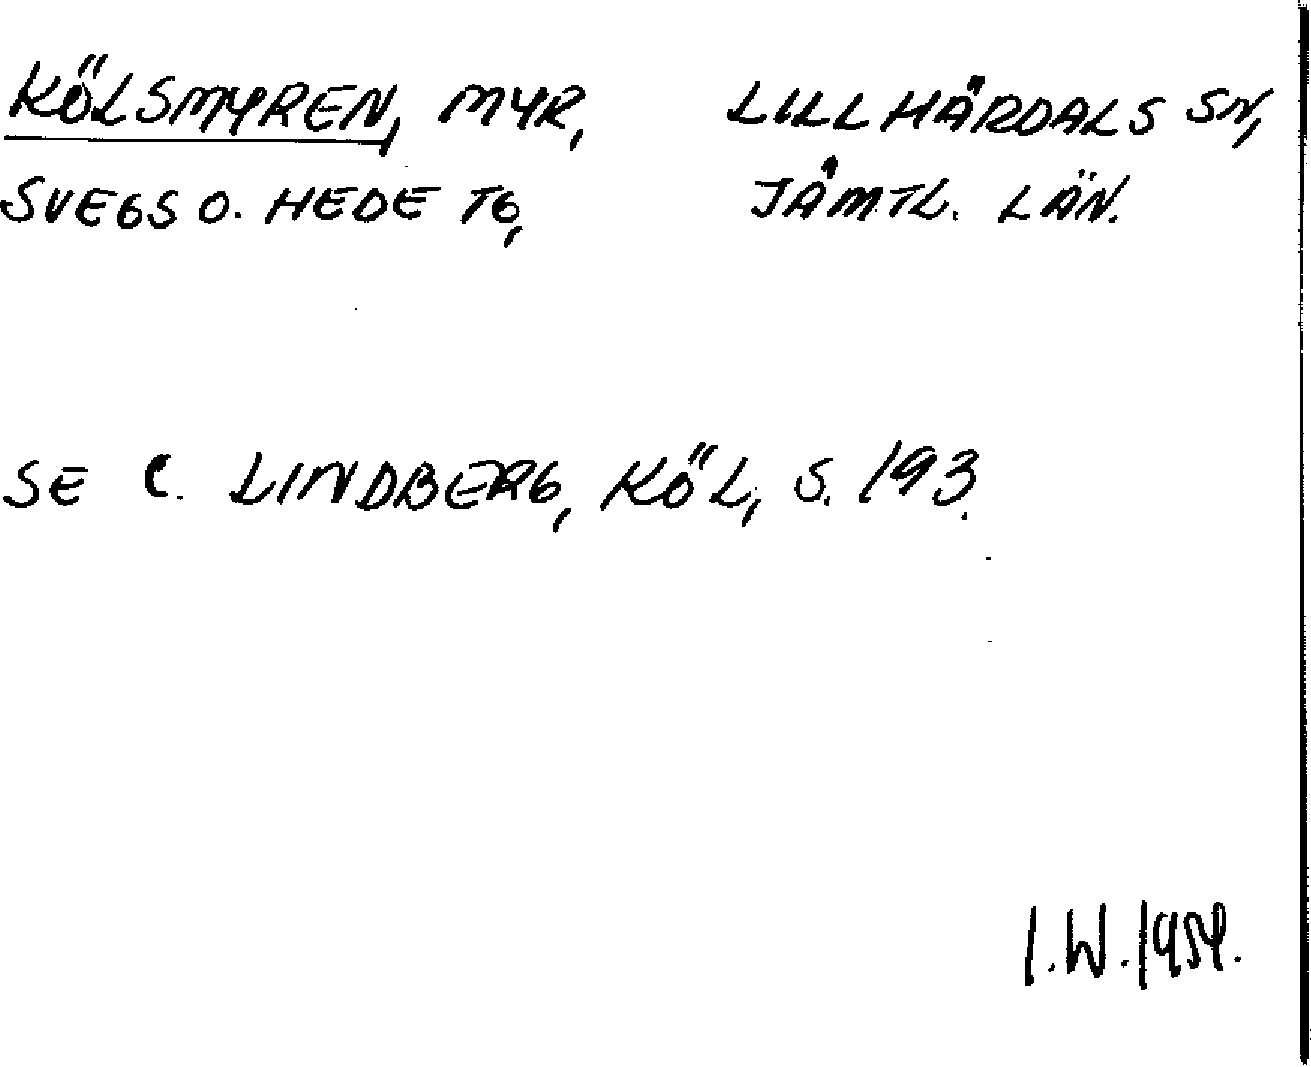 KÖLSMYREN, MYR, LILLHÄRDALS SN,
SVEGS O. HEDE TG, JÄMTL. LÄN.
SE C. LINDBERG, KÖL, S. 193.
I.W.1954.